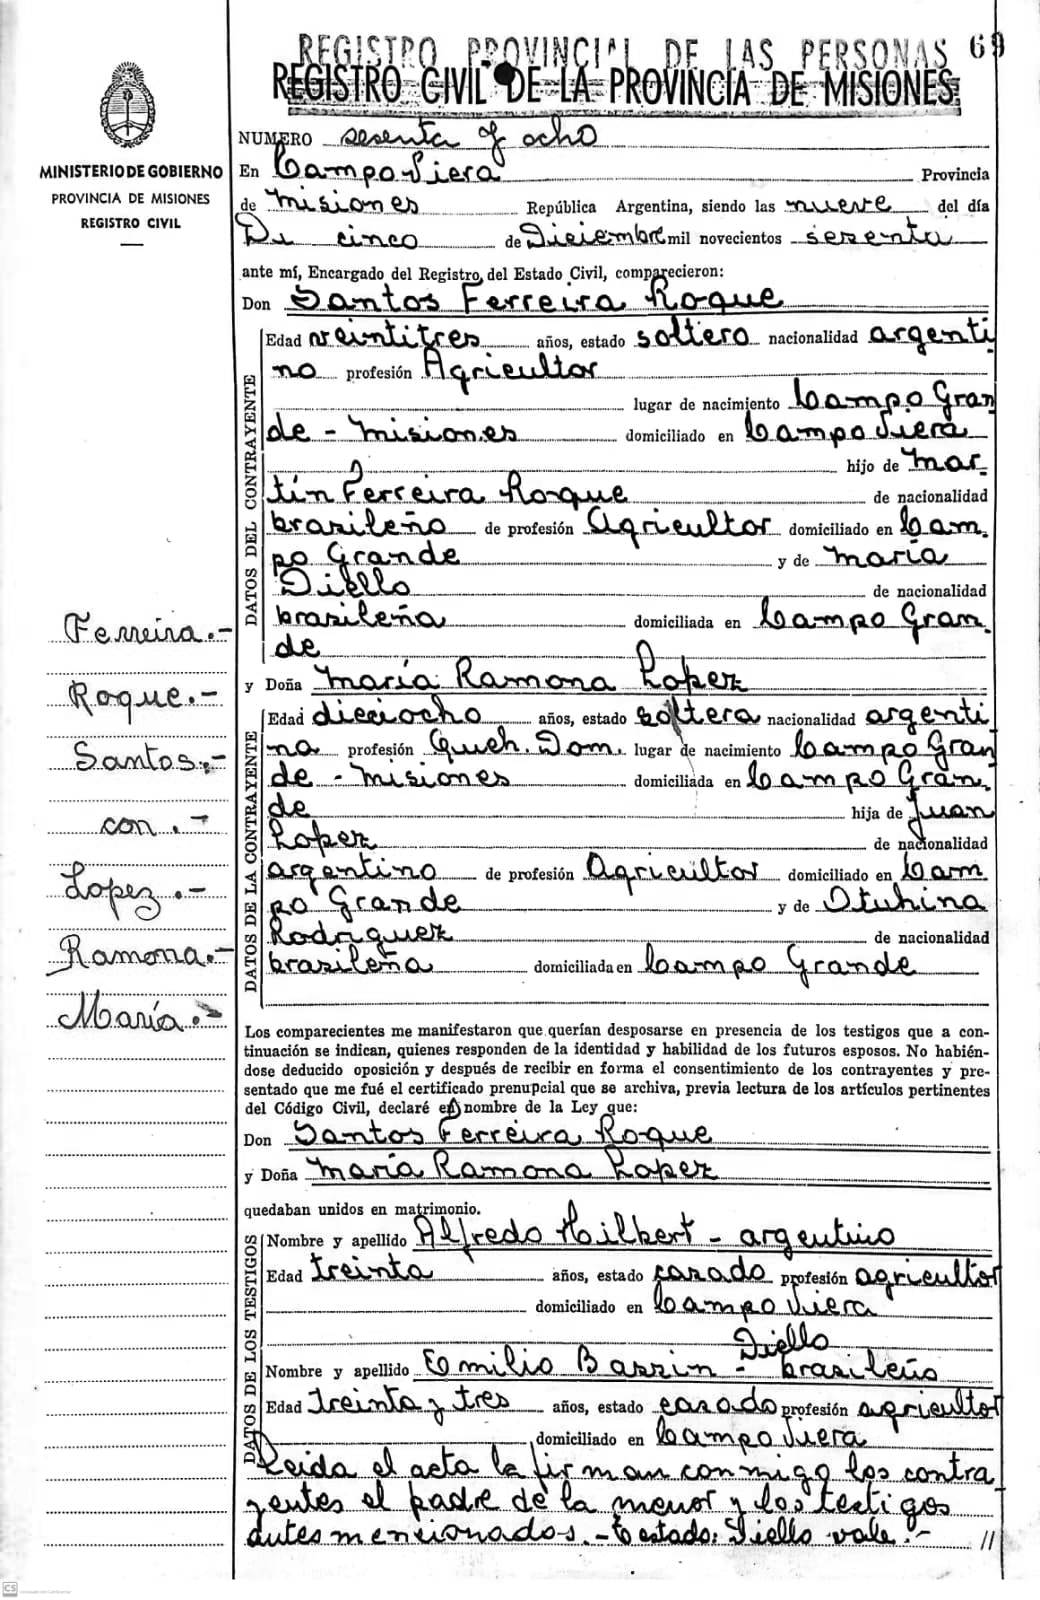 REGISTRO PROVINCIAL DE LAS PERSONAS 69
REGISTRO CIVIL DE LA PROVINCIA DE MISIONES
MINISTERIO DE GOBIERNO
PROVINCIA DE MISIONES
REGISTRO CIVIL
NUMERO sesenta y ocho
En Campo Viera Provincia
de Misiones República Argentina, siendo las nueve del día
De cinco de Diciembre mil novecientos sesenta
ante mí, Encargado del Registro del Estado Civil, comparecieron:
Don Santos Ferreira Roque
DATOS DEL CONTRAYENTE
Edad veintitres años, estado soltero nacionalidad argenti
no profesión Agricultor
lugar de nacimiento Campo Gran
de - Misiones domiciliado en Campo Viera
hijo de Mar-
tín Ferreira Roque de nacionalidad
brasileño de profesión Agricultor domiciliado en Cam-
po Grande y de María
Diello de nacionalidad
brasileña domiciliada en Campo Gran-
de
y Doña María Ramona Lopez
DATOS DE LA CONTRAYENTE
Edad dieciocho años, estado soltera nacionalidad argenti
na profesión Queh. Dom. lugar de nacimiento Campo Gran
de - Misiones domiciliada en Campo Gran-
de hija de Juan
Lopez de nacionalidad
argentino de profesión Agricultor domiciliado en Cam
po Grande y de Otuhina
Rodriguez de nacionalidad
brasileña domiciliada en Campo Grande
Ferreira.-
Roque.-
Santos.-
con.-
Lopez.-
Ramona.-
María.-
Los comparecientes me manifestaron que querían desposarse en presencia de los testigos que a con-
tinuación se indican, quienes responden de la identidad y habilidad de los futuros esposos. No habién-
dose deducido oposición y después de recibir en forma el consentimiento de los contrayentes y pre-
sentado que me fué el certificado prenupcial que se archiva, previa lectura de los artículos pertinentes
del Código Civil, declaré en nombre de la Ley que:
Don Santos Ferreira Roque
y Doña María Ramona Lopez
quedaban unidos en matrimonio.
DATOS DE LOS TESTIGOS
Nombre y apellido Alfredo Hilbert - argentino
Edad treinta años, estado casado profesión agricultor
domiciliado en Campo Viera
Diello
Nombre y apellido Emilio Bassin - brasileño
Edad treinta y tres años, estado casado profesión agricultor
domiciliado en Campo Viera
Leida el acta la firman conmigo los contra
yentes el padre de la menor y los testigos
antes mencionados. - Testado: Diello vale.- //
CS